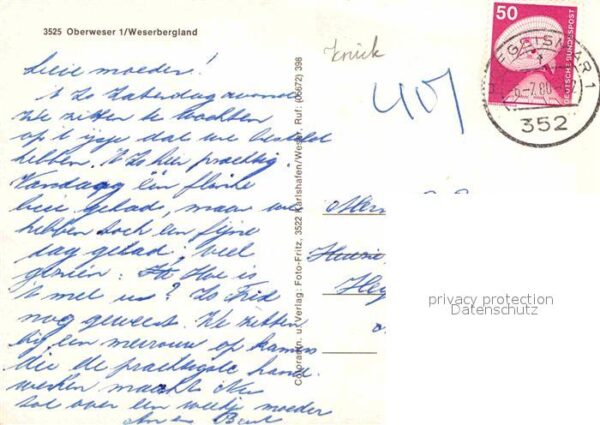 3525 Oberweser 1/Weserbergland
Lieve moeder!
't Is Zaterdagavond
We zitten te wachten
op 't ijsje dat we besteld
hebben. 't Is hier prachtig.
Vandaag één flinke
bui gehad, maar we
hebben toch een fijne
dag gehad; veel
gezien. Hoe is
't met u? Is
nog geweest. We zitten
bij een mevrouw op kamers
die de prachtigste hand
werken maakt
tot over een weekje moeder
Colorardn. u. Verlag: Foto-Fritz, 3522 Karlshafen/Weser, Ruf: (05672) 398
407
50
DEUTSCHE BUNDESPOST
-7.80
352
privacy protection
Datenschutz